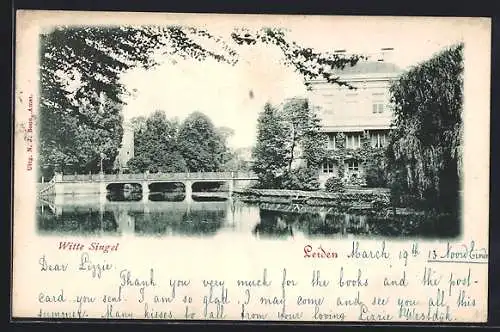 Uitg. N. J. Boon, Amst.
Witte Singel
Leiden March 19th 13 Noord Einde
Dear Lizzie
Thank you very much for the books and the post-
card you sent. I am so glad I may come and see you all this
summer. Many kisses to all from your loving Lizzie Westdijk.